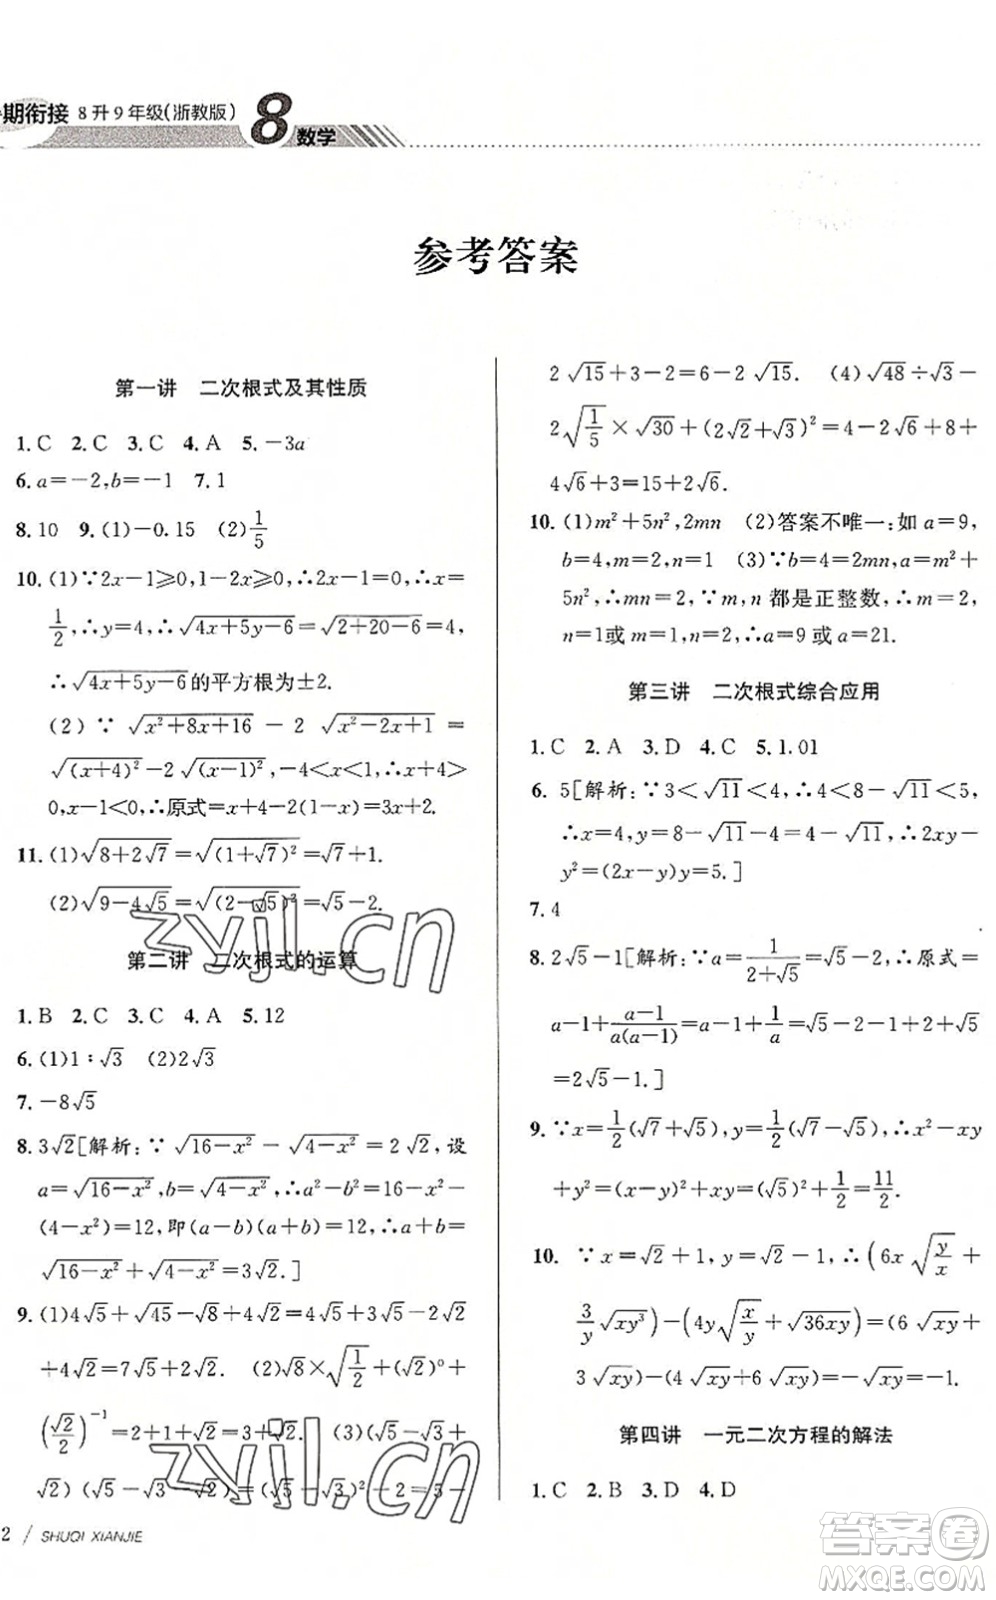 期衔接 8升9年级(浙教版) 8 数学
参考答案
第一讲 二次根式及其性质
1. C 2. C 3. C 4. A 5. －3a
6. a＝－2,b＝－1 7. 1
8. 10 9. (1)－0.15 (2)1/5
10. (1)∵2x－1≥0,1－2x≥0,∴2x－1＝0,∴x＝
1/2,∴y＝4,∴√(4x＋5y－6)＝√(2＋20－6)＝4,
∴√(4x＋5y－6)的平方根为±2.
(2)∵√(x²＋8x＋16)－2√(x²－2x＋1)＝
√((x＋4)²)－2√((x－1)²),－4＜x＜1,∴x＋4＞
0,x－1＜0,∴原式＝x＋4－2＋2x＝3x＋2.
11. (1)√(8＋2√7)＝√((1＋√7)²)＝√7＋1.
(2)√(9－4√5)＝√((2－√5)²)＝√5－2.
第二讲 二次根式的运算
1. B 2. C 3. C 4. A 5. 12
6. (1)1∶√3 (2)2√3
7. －8√5
8. 3√2[解析:∵√(16－x²)－√(4－x²)＝2√2,设
a＝√(16－x²),b＝√(4－x²),∴a²－b²＝16－x²－
(4－x²)＝12,即(a－b)(a＋b)＝12,∴a＋b＝
√(16－x²)＋√(4－x²)＝3√2.]
9. (1)4√5＋√45－√8＋4√2＝4√5＋3√5－2√2
＋4√2＝7√5＋2√2. (2)√8×√(1/2)＋(√2)⁰＋
(√2/2)⁻¹＝2＋1＋√2＝3＋√2. (3)(√5－√3＋
√2)(√5－√3－√2)＝(√5－√3)²－(√2)²＝5－
2√15＋3－2＝6－2√15. (4)√48÷√3－
2√(1/5)×√30＋(2√2＋√3)²＝4－2√6＋8＋
4√6＋3＝15＋2√6.
10. (1)m²＋5n²,2mn (2)答案不唯一:如a＝9,
b＝4,m＝2,n＝1 (3)∵b＝4＝2mn,a＝m²＋
5n²,∴mn＝2,∵m,n都是正整数,∴m＝2,
n＝1或m＝1,n＝2,∴a＝9或a＝21.
第三讲 二次根式综合应用
1. C 2. A 3. D 4. C 5. 1.01
6. 5[解析:∵3＜√11＜4,∴4＜8－√11＜5,
∴x＝4,y＝8－√11－4＝4－√11,∴2xy－
y²＝(2x－y)y＝5.]
7. 4
8. 2√5－1[解析:∵a＝1/(2＋√5)＝√5－2,∴原式＝
a－1＋(a－1)/(a(a－1))＝a－1＋1/a＝√5－2－1＋2＋√5
＝2√5－1.]
9. ∵x＝1/2(√7＋√5),y＝1/2(√7－√5),∴x²－xy
＋y²＝(x－y)²＋xy＝(√5)²＋1/2＝11/2.
10. ∵x＝√2＋1,y＝√2－1,∴(6x√(y/x)＋
3/y√(xy³))－(4y√(x/y)＋√(36xy))＝(6√(xy)＋
3√(xy))－(4√(xy)＋6√(xy))＝－√(xy)＝－1.
第四讲 一元二次方程的解法
1. C 2. B 3. D 4. D
2 / SHUQI XIANJIE
zyjl.cn
zyjl.cn
答案卷
MXQE.COM